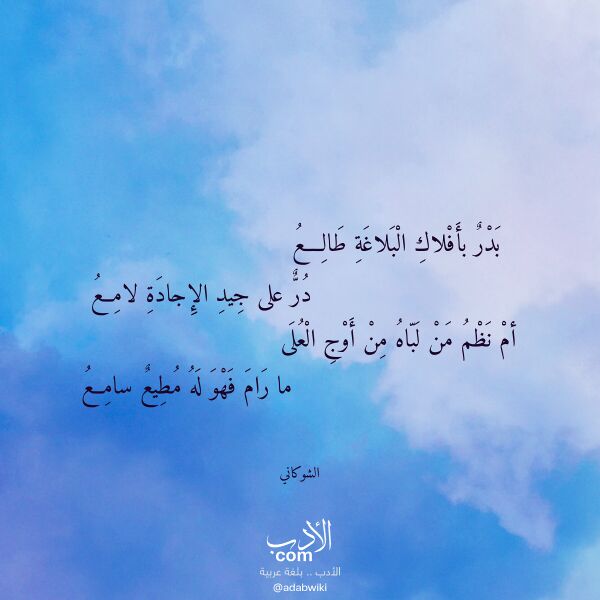 بَدْرٌ بأَفْلاكِ الْبَلاغَةِ طَالِــعُ
دُرٌّ على جِيدِ الإِجادَةِ لامِـعُ
أمْ نَظْمُ مَنْ لَبّاهُ مِنْ أَوْجِ الْعُلَى
ما رَامَ فَهْوَ لَهُ مُطِيعٌ سامِـعُ
الشوكاني
الأدب
com
الأدب .. بلغة عربية
@adabwiki